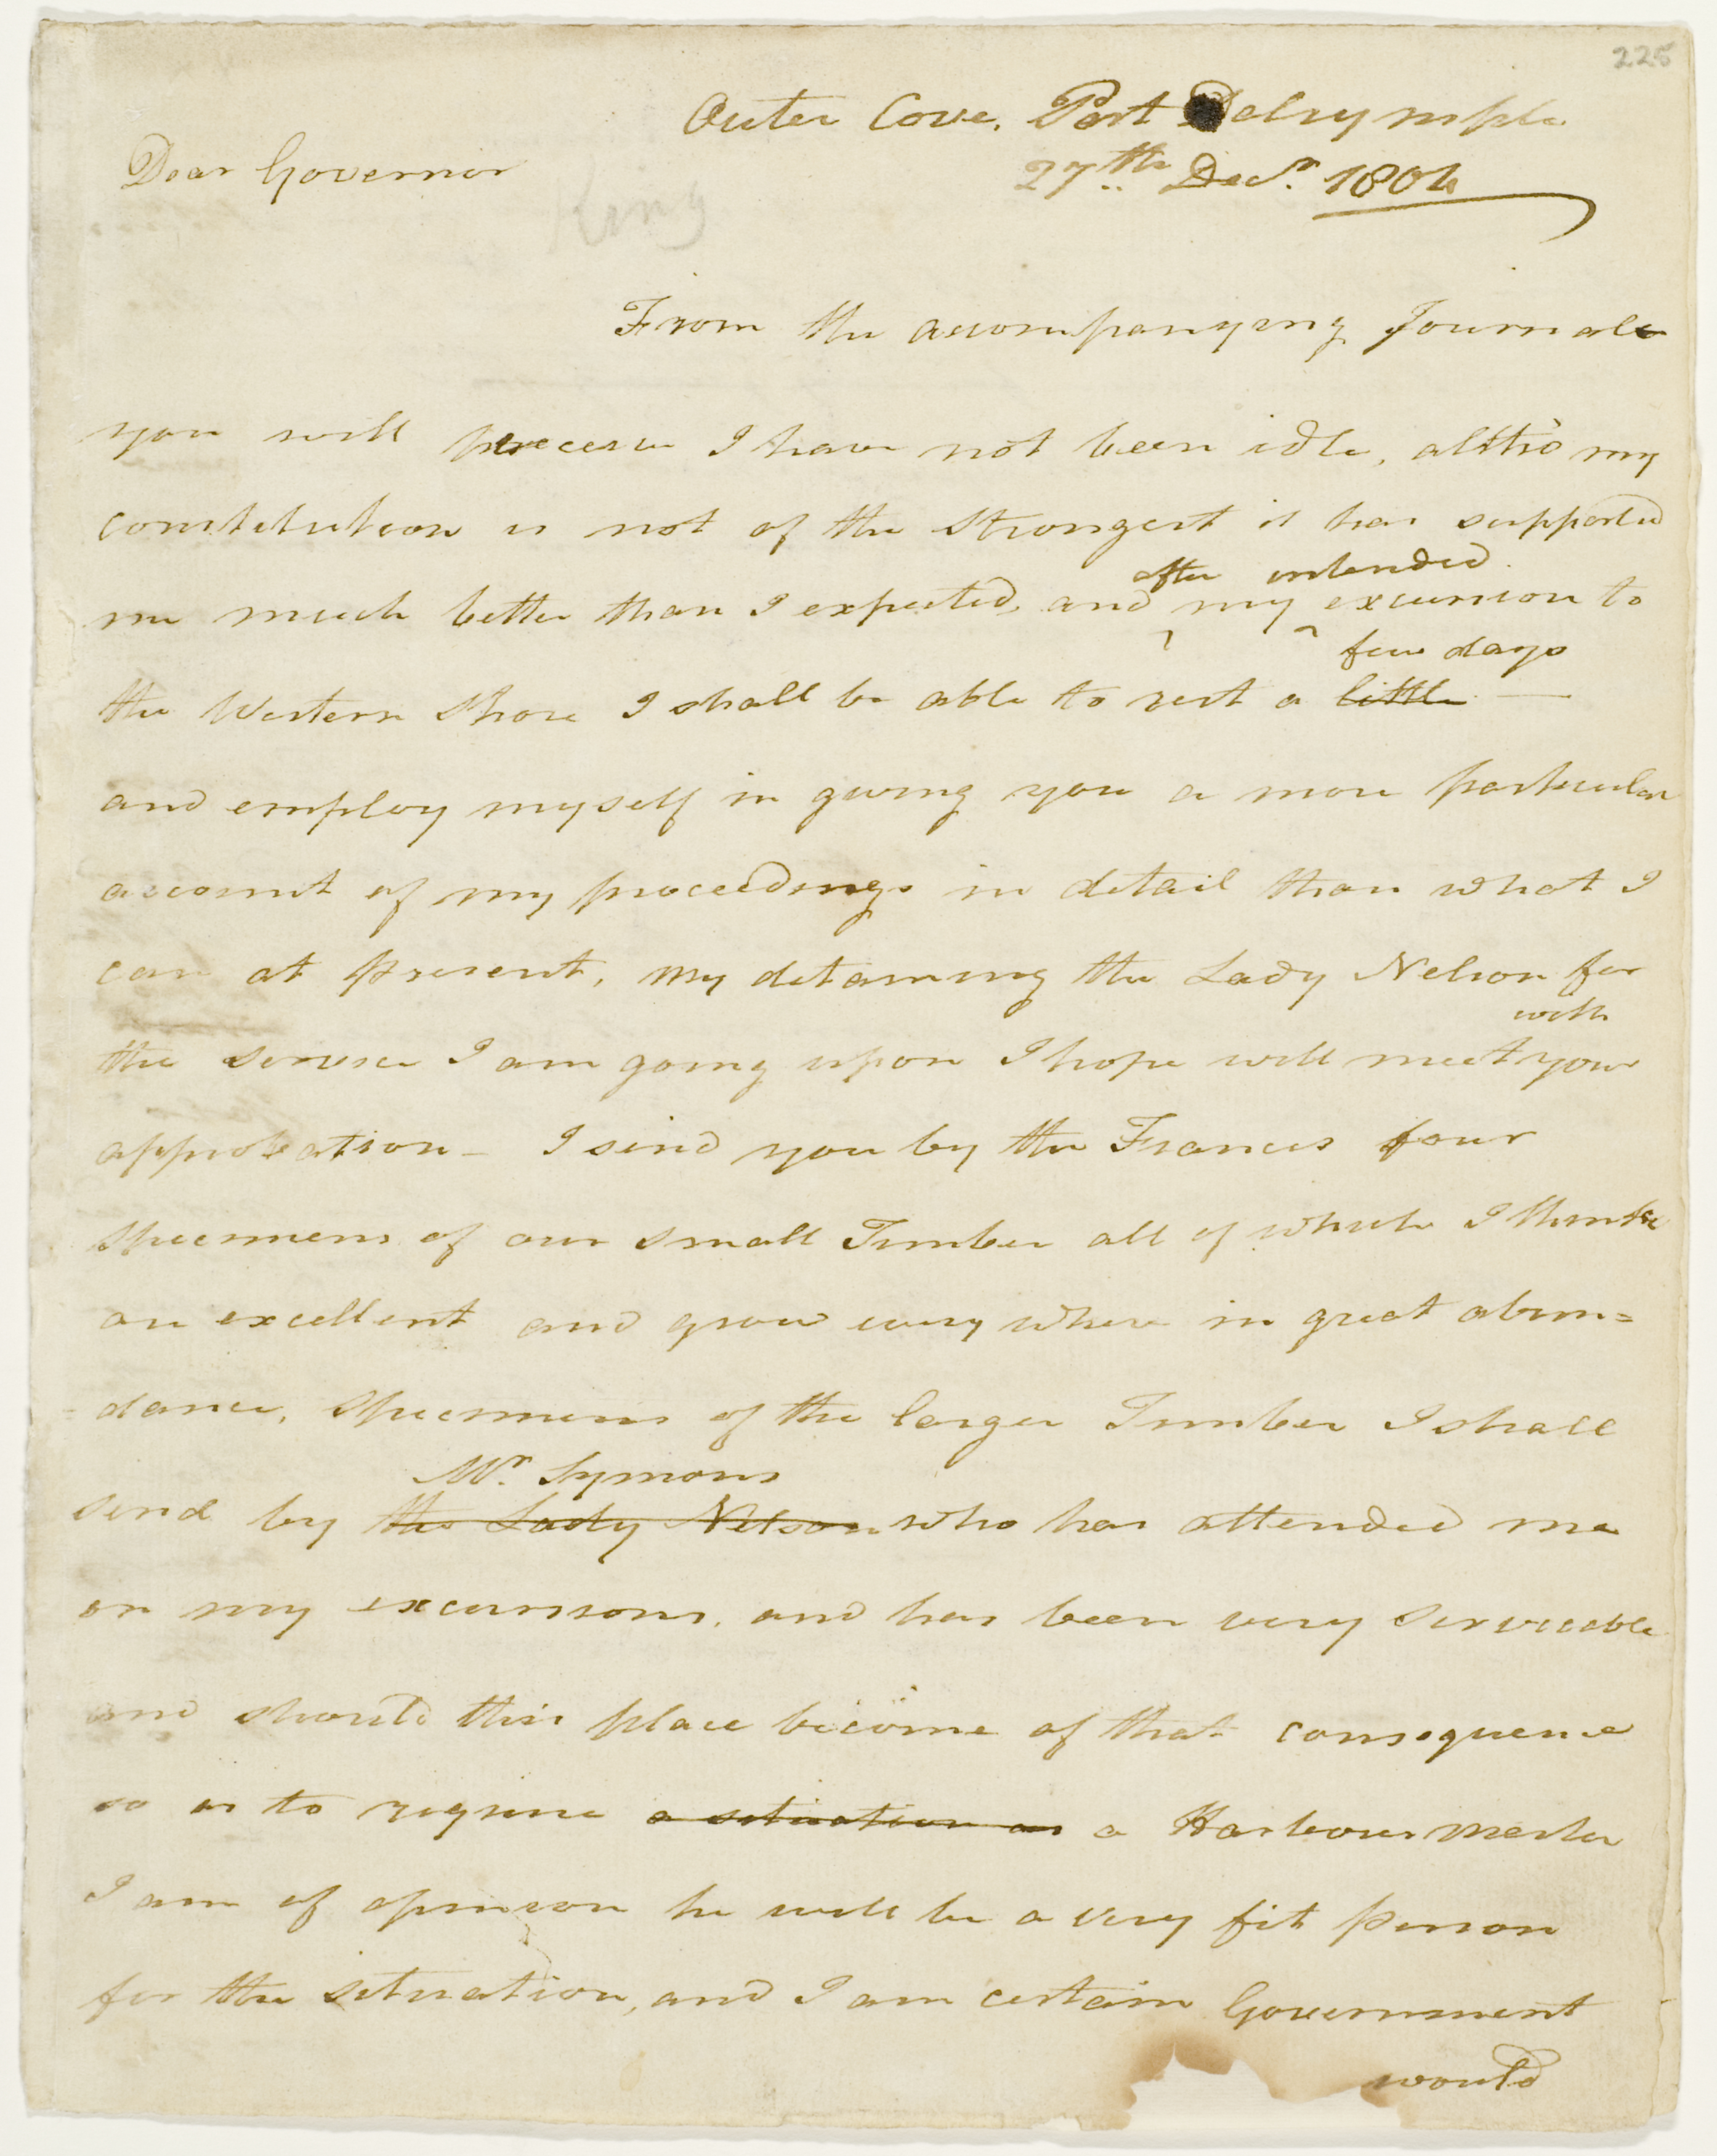 225
Outer Cove, Port Dalrymple
Dear Governor
27th Decr. 1804
King
From the accompanying Journals
you will perceive I have not been idle, altho' my
constitution is not of the strongest it has supported
after intended
me much better than I expected, and my excursion to
few days
the Western Shore I shall be able to rest a little —
and employ myself in giving you a more particular
account of my proceedings in detail than what I
can at present, my detaining the Lady Nelson for
with
the service I am going upon I hope will meet your
approbation – I send you by the Francis four
specimens of our small Timber all of which I think
are excellent and grow every where in great abun=
=dance, specimens of the larger Timber I shall
Mr. Symons
send by the Lady Nelson who has attended me
on my excursions, and has been very serviceable
and should this place become of that consequence
so as to require a situation as a Harbour Master
I am of opinion he will be a very fit person
for the situation, and I am certain Government
would